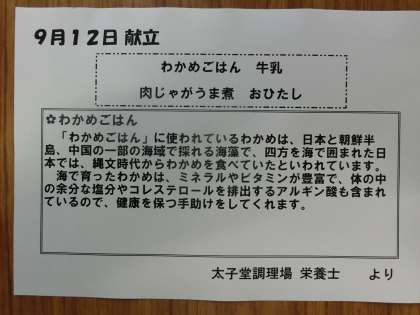 9月12日 献立
わかめごはん 牛乳
肉じゃがうま煮 おひたし
✿わかめごはん
「わかめごはん」に使われているわかめは、日本と朝鮮半
島、中国の一部の海域で採れる海藻で、四方を海で囲まれた日
本では、縄文時代からわかめを食べていたといわれています。
海で育ったわかめは、ミネラルやビタミンが豊富で、体の中
の余分な塩分やコレステロールを排出するアルギン酸も含まれ
ているので、健康を保つ手助けをしてくれます。
太子堂調理場 栄養士 より